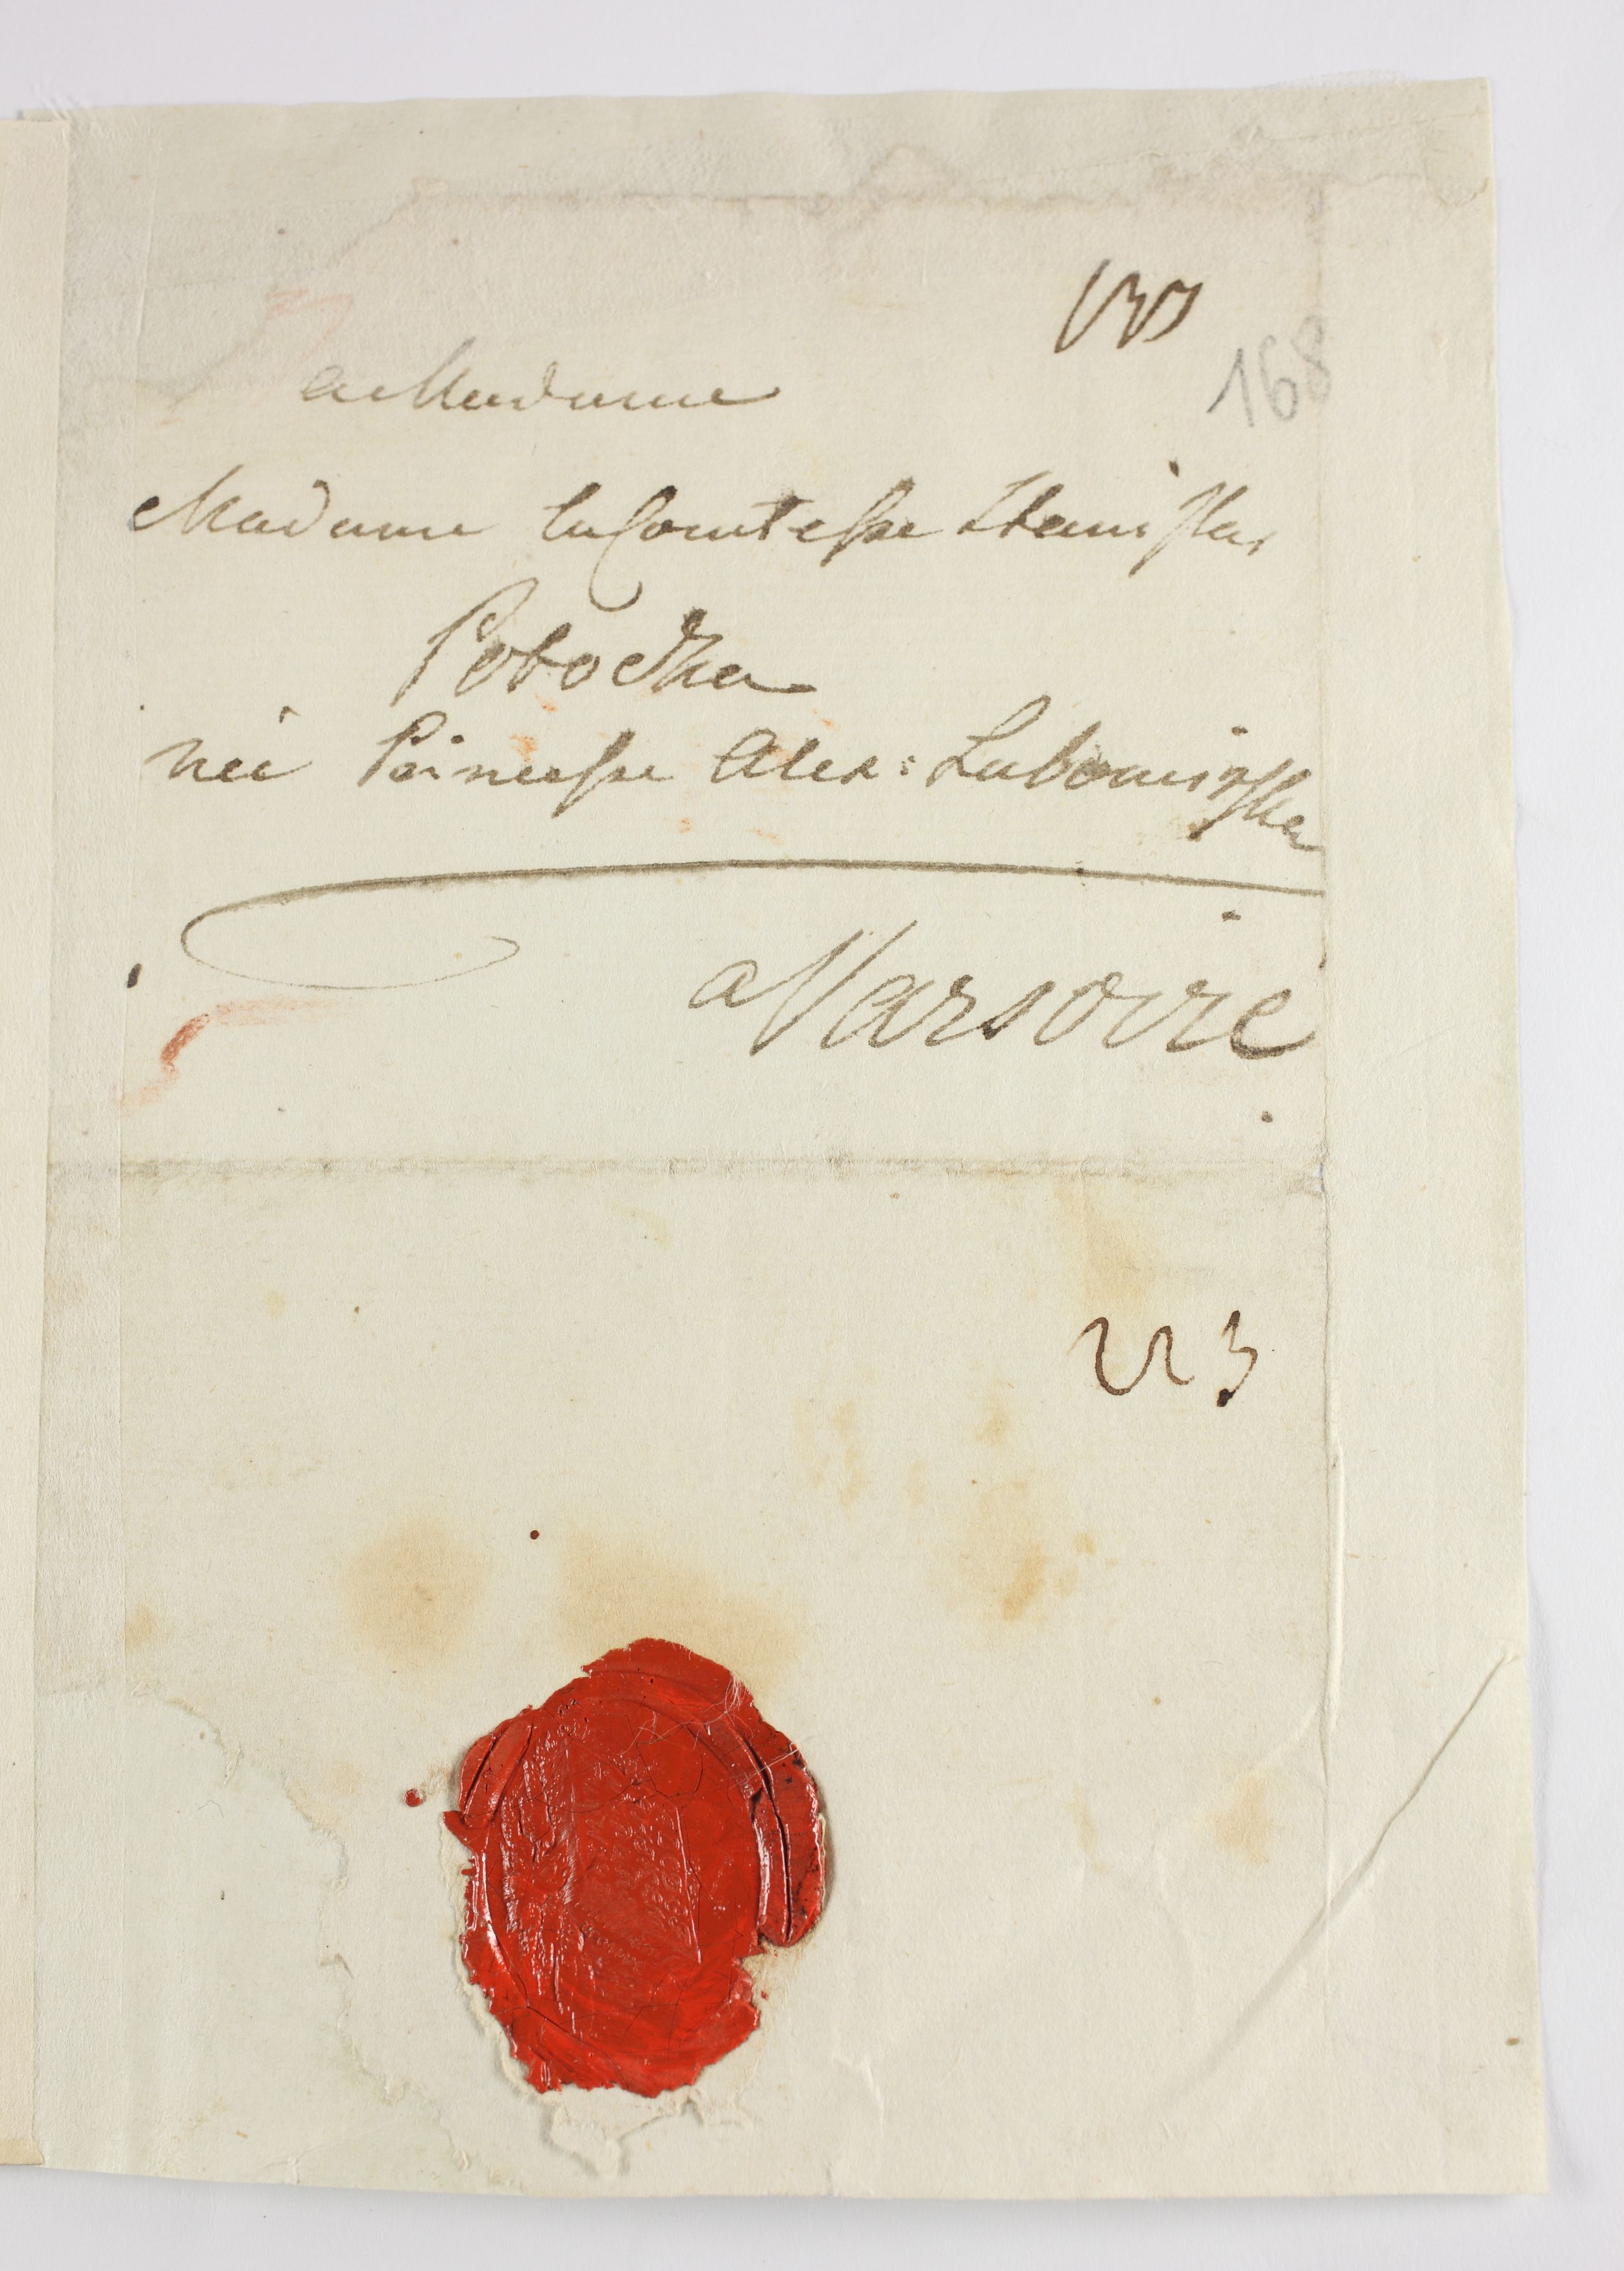 168
a Madame
Madame la Comtesse Stanislas
Potocka
née Princesse Alex: Lubomirska
a Varsovie
223